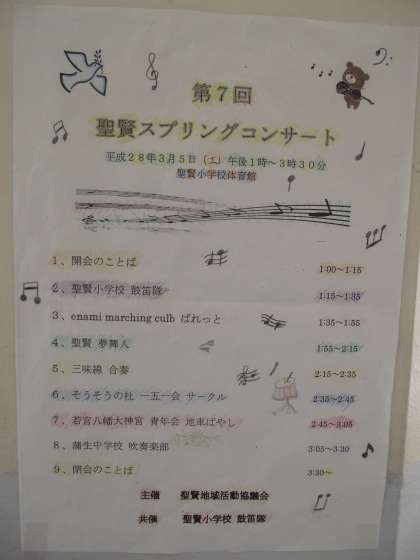 第7回
聖賢スプリングコンサート
平成28年3月5日(土)午後1時～3時30分
聖賢小学校体育館
1、開会のことば 1:00～1:15
2、聖賢小学校 鼓笛隊 1:15～1:35
3、enami marching culb ぱれっと 1:35～1:55
4、聖賢 夢舞人 1:55～2:15
5、三味線 合奏 2:15～2:35
6、そうぞうの杜 一五一会 サークル 2:35～2:45
7、若宮八幡大神宮 青年会 地車ばやし 2:45～3:05
8、蒲生中学校 吹奏楽部 3:05～3:30
9、閉会のことば 3:30～
主催 聖賢地域活動協議会
共催 聖賢小学校 鼓笛隊